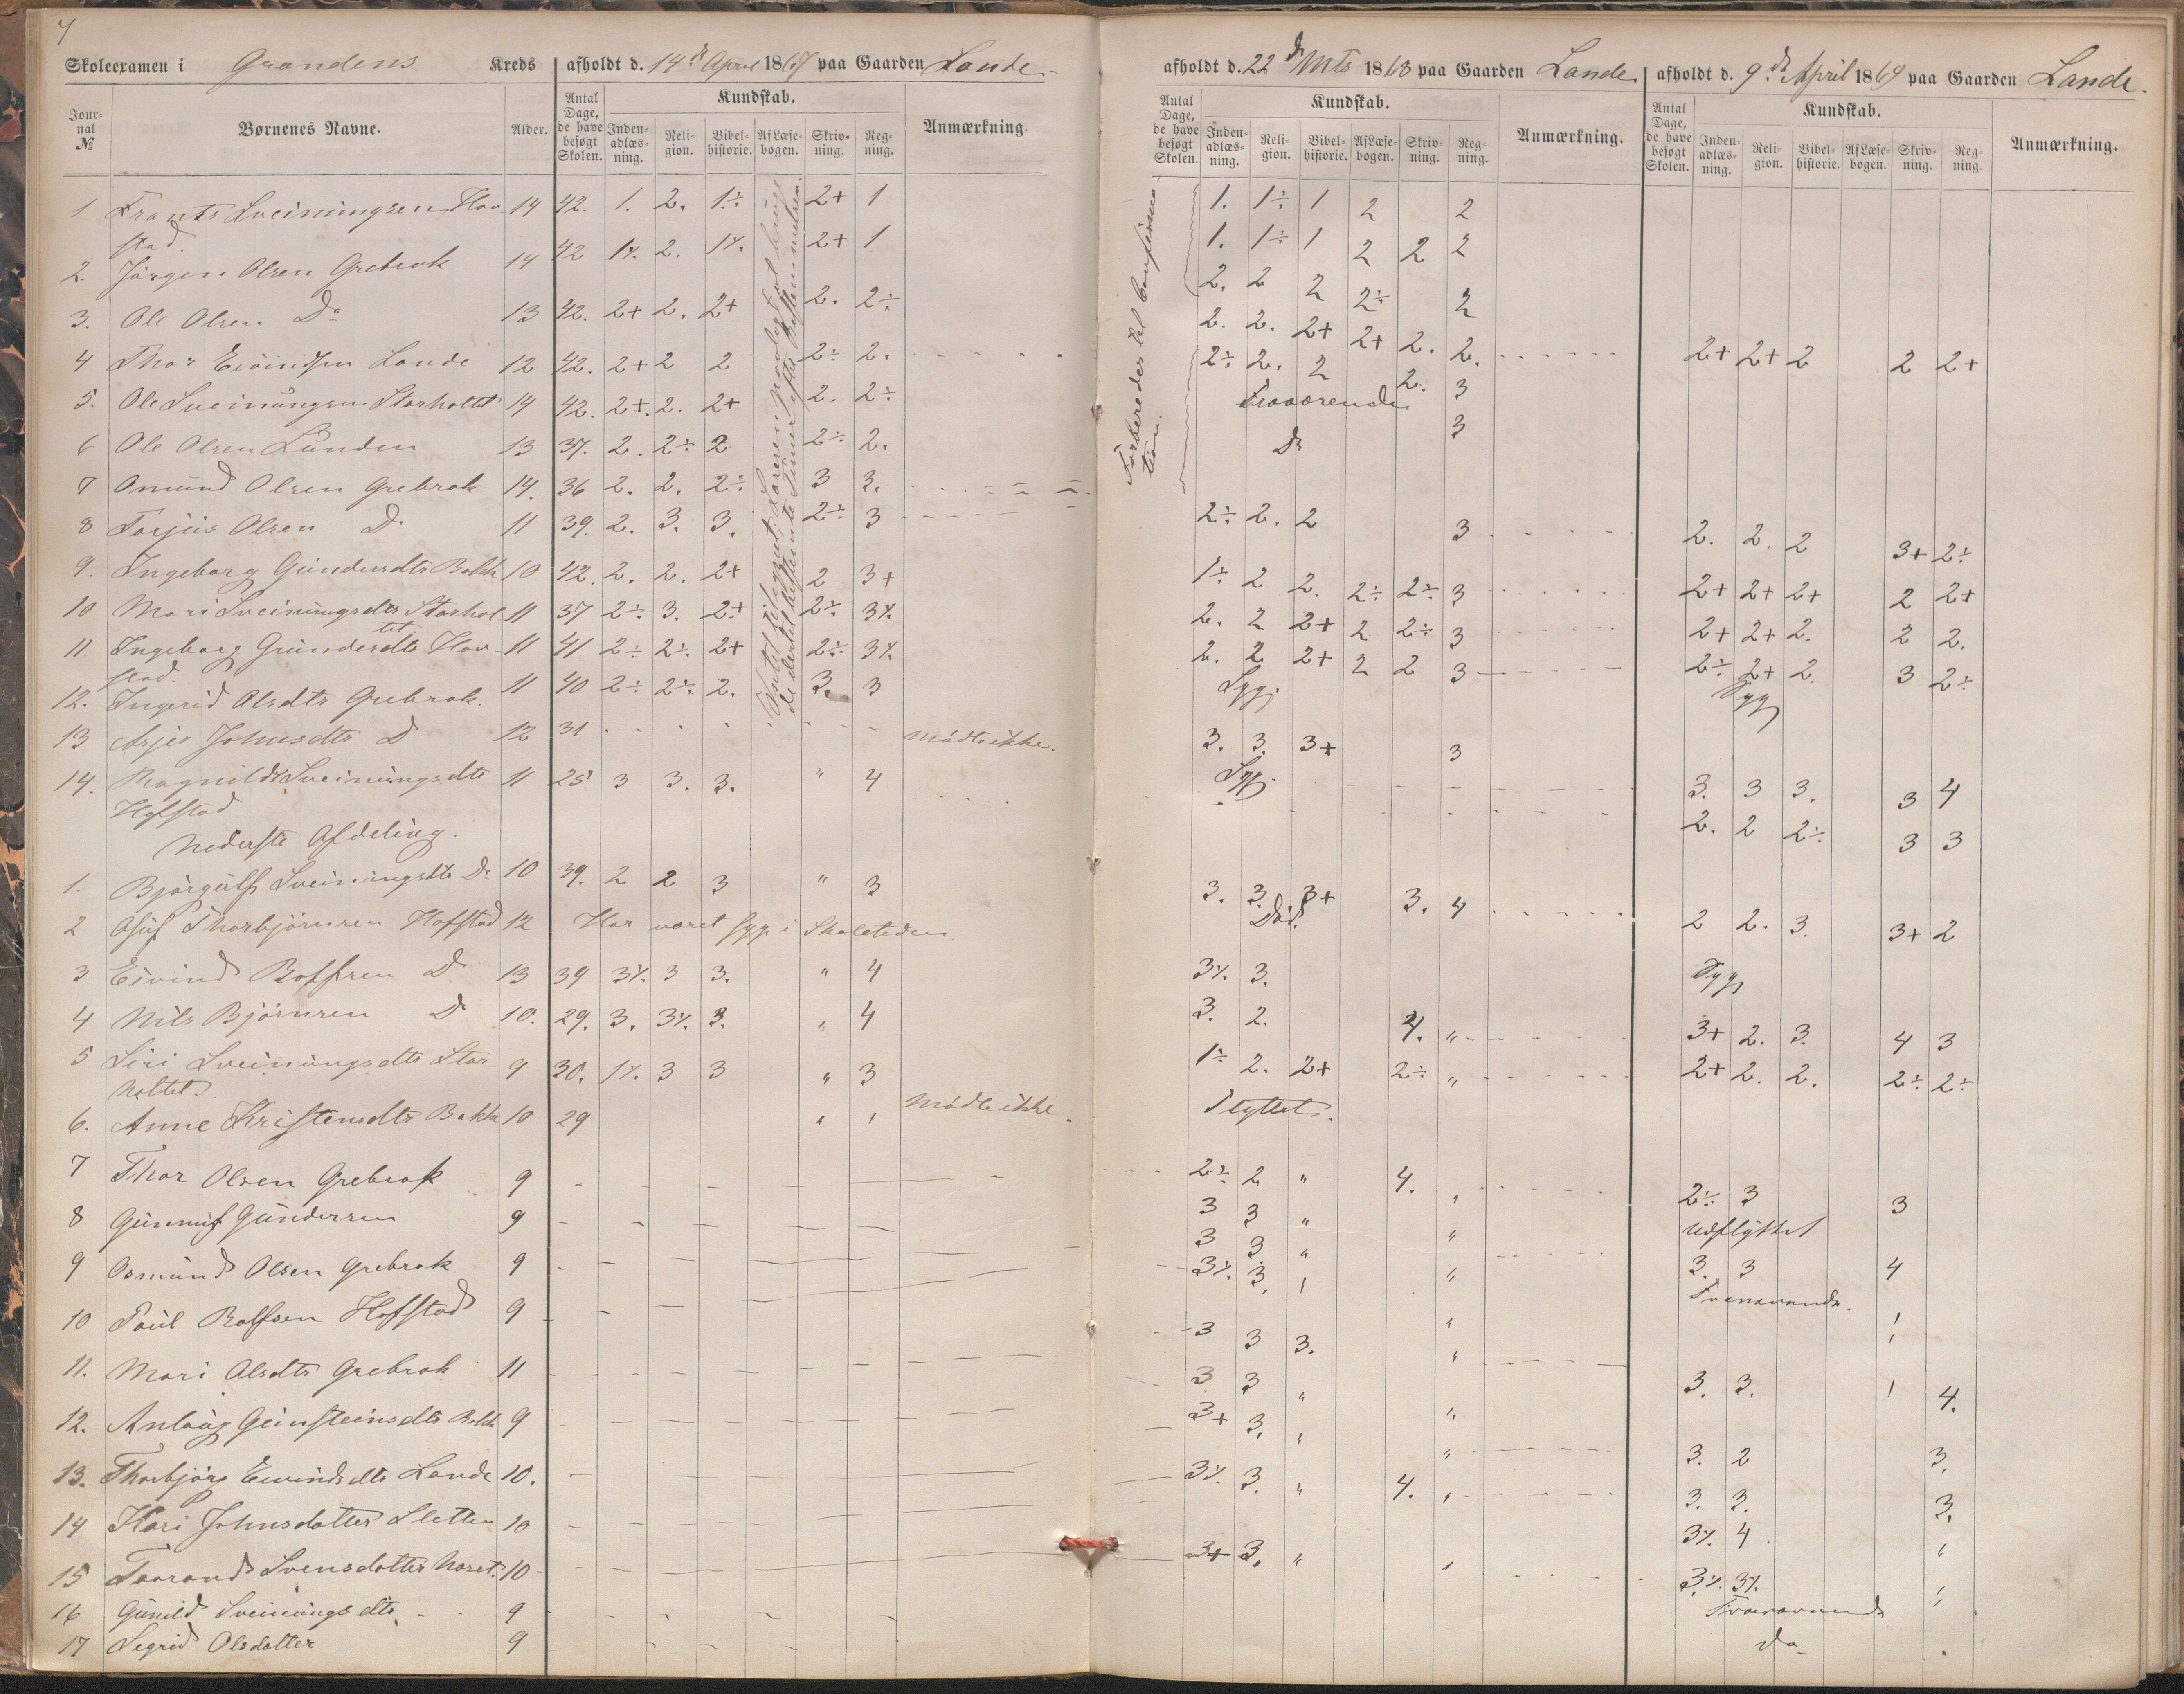 7
Skoleexamen i Grandens Kreds afholdt d. 14de April 1867 paa Gaarden Lande
Jour-nal № Børnenes Navne. Alder. Antal Dage, de have besøgt Skolen. Kundskab. Inden-adlæs-ning. Reli-gion. Bibel-historie. Af Læse-bogen. Skriv-ning. Reg-ning. Anmærkning.
1 Frants Sveiningsen Hov- 14 42. 1. 2. 1÷ 2+ 1
stad.
2. Jörgen Olsen Grebrok 14 42 1÷ 2. 1÷ 2+ 1
3. Ole Olsen Do 13 42. 2+ 2. 2+ 2. 2÷
4 Thor Eivindsen Lande 12 42. 2+ 2 2 2÷ 2.
5. Ole Sveinungsen Storholtet 14 42. 2+. 2. 2+ 2. 2÷
6 Ole Olsen Lunden 13 37. 2. 2÷ 2 2÷ 2.
7 Omund Olsen Grebrok 14. 36 2. 2. 2÷ 3 3.
8 Torjus Olsen Do 11 39. 2. 3. 3. 2÷ 3
9. Ingeborg Gundersdtr Bakk 10 42. 2. 2. 2+ 2 3+
10 Mari Sveinungsdtr Storhol 11 37 2÷ 3. 2+ 2÷ 3÷
tet
11. Ingeborg Gundersdtr Hov- 11 41 2÷ 2÷ 2+ 2÷ 3÷
stad.
12. Ingerid Olsdtr Grebrok. 11 40 2÷ 2÷ 2. 3. 3
13 Asjer Johnsdtr Do 12 31 mödte ikke.
14. Ragnild Sveinungsdtr 11 25 3 3. 3. " 4
Hofstad
Nederste Afdeling.
1. Björgulf Sveinungsdtr Do 10 39. 2 2 3 " 3
2 Thorbjörnsen Hofstad 12 Har været syg i Skoletiden.
3 Eivind Rolfsen Do 13 39 3÷ 3 3. " 4
4 Nils Björnsen Do 10. 29. 3. 3÷ 3. " 4
5 Siri Sveinungsdtr Stor- 9 30. 1÷ 3 3 " 3
holtet.
6. Anne Kristensdtr Bakk 10 29 " " mödte ikke.
7 Thor Olsen Grebrok 9
8 Gunnuf Gundersen 9
9 Osmund Olsen Grebrok 9
10 Paul Rolfsen Hofstad 9
11. Mari Olsdtr Grebrok 11
12. Anlaug Geirsteinsdtr Bakk 9
13. Thorbjörg Eivindsdtr Lande 10.
14 Kari Johnsdatter Sletten 10
15 Taarand Svensdatter Moret. 10
16 Gunild Sveinungsdtr 9
17 Segrid Olsdatter 9
afholdt d. 22de Mts 1868 paa Gaarden Lande
Antal Dage, de have besøgt Skolen. Kundskab. Inden-adlæs-ning. Reli-gion. Bibel-historie. Af Læse-bogen. Skriv-ning. Reg-ning. Anmærkning.
Forbereder til Confirma-
tion.
1. 1÷ 1 2 2
1. 1÷ 1 2 2 2
2. 2 2 2÷ 2
2. 2. 2+ 2+ 2. 2.
2÷ 2. 2 2. 3
Fraværende 3
Do
2÷ 2. 2 3
1÷ 2 2. 2÷ 2÷ 3
2. 2 2+ 2 2÷ 3
2. 2 2+ 2 2 3
Syg.
3. 3. 3+ 3
Syg.
3. 3. 3+ 3. 4
Död.
3÷ 3.
3. 2. 4. "
1÷ 2. 2+ 2÷ "
Flyttet.
2÷ 2 " 4. "
3 3 " "
3 3 " "
3÷ 3. "
3 3 3. "
3 3 " "
3+ 3. " "
3÷ 3. " 4. "
3+ 3. " "
afholdt d. 9de April 1869 paa Gaarden Lande.
Antal Dage, de have besøgt Skolen. Kundskab. Inden-adlæs-ning. Reli-gion. Bibel-historie. Af Læse-bogen. Skriv-ning. Reg-ning. Anmærkning.
2+ 2+ 2 2 2+
2. 2. 2 3+ 2÷
2+ 2+ 2+ 2 2+
2+ 2+ 2. 2 2.
2÷ 2+ 2. 3 2÷
Syg
3. 3 3. 3 4
2. 2 2÷ 3 3
2 2. 3. 3+ 2
Syg
3+ 2. 3. 4 3
2+ 2. 2. 2÷ 2÷
2÷ 3 3
Udflyttet
3. 3 4
Fraværende.
3. 3. 4.
3. 2 3.
3. 3. 3.
3÷ 4 "
3÷ 3÷
Fraværende
Do